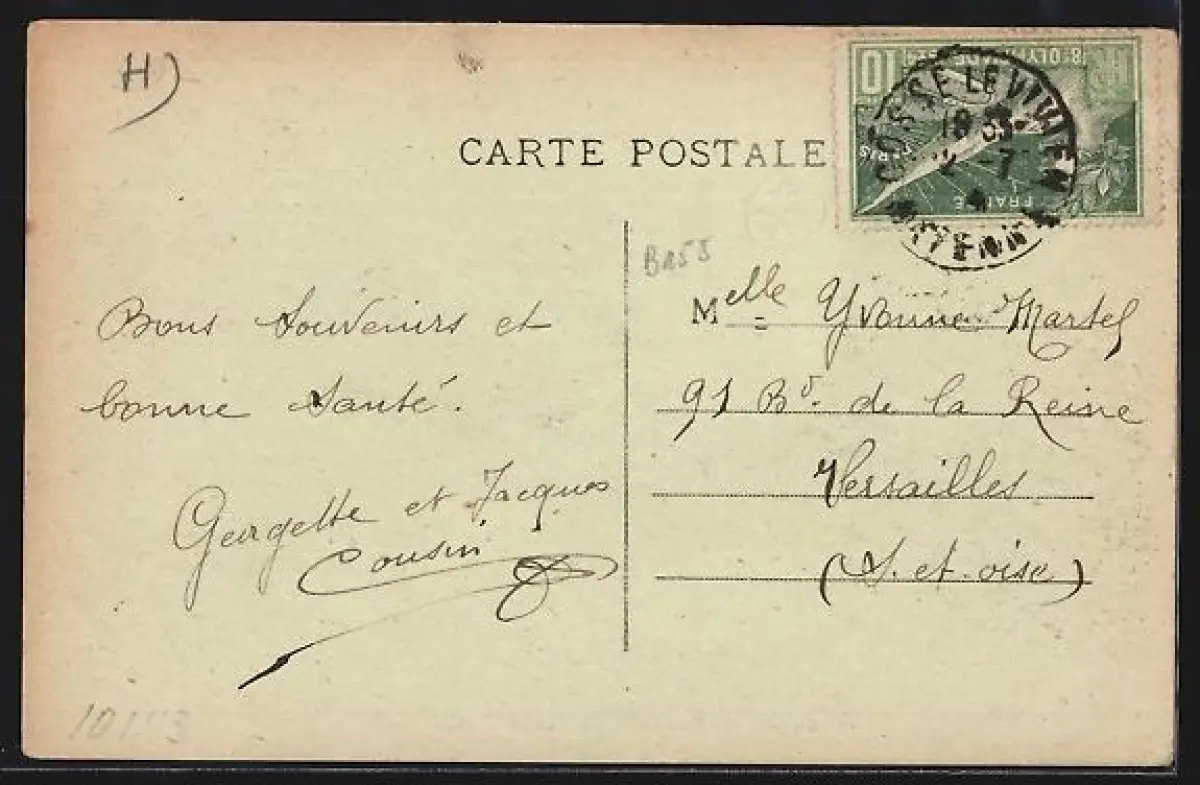 H)
CARTE POSTALE
10
8e OLYMPIADE
PARIS
FRANCE
COSSE LE VIVIEN
18 35
2 -7
MAYENNE
Bons Souvenirs et
bonne Santé.
Georgette et Jacques
Cousin
Melle Yvonne Martel
91 Bd. de la Reine
Versailles
(S. et. oise)